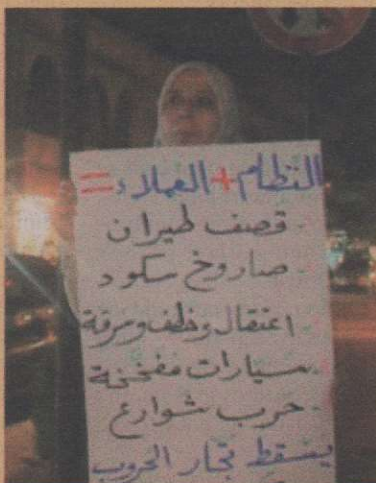 النظام + العملاء =
- قصف طيران
- صاروخ سكود
- اعتقال وخطف وسرقة
- سيارات مفخخة
- حرب شوارع
يسقط تجار الحروب